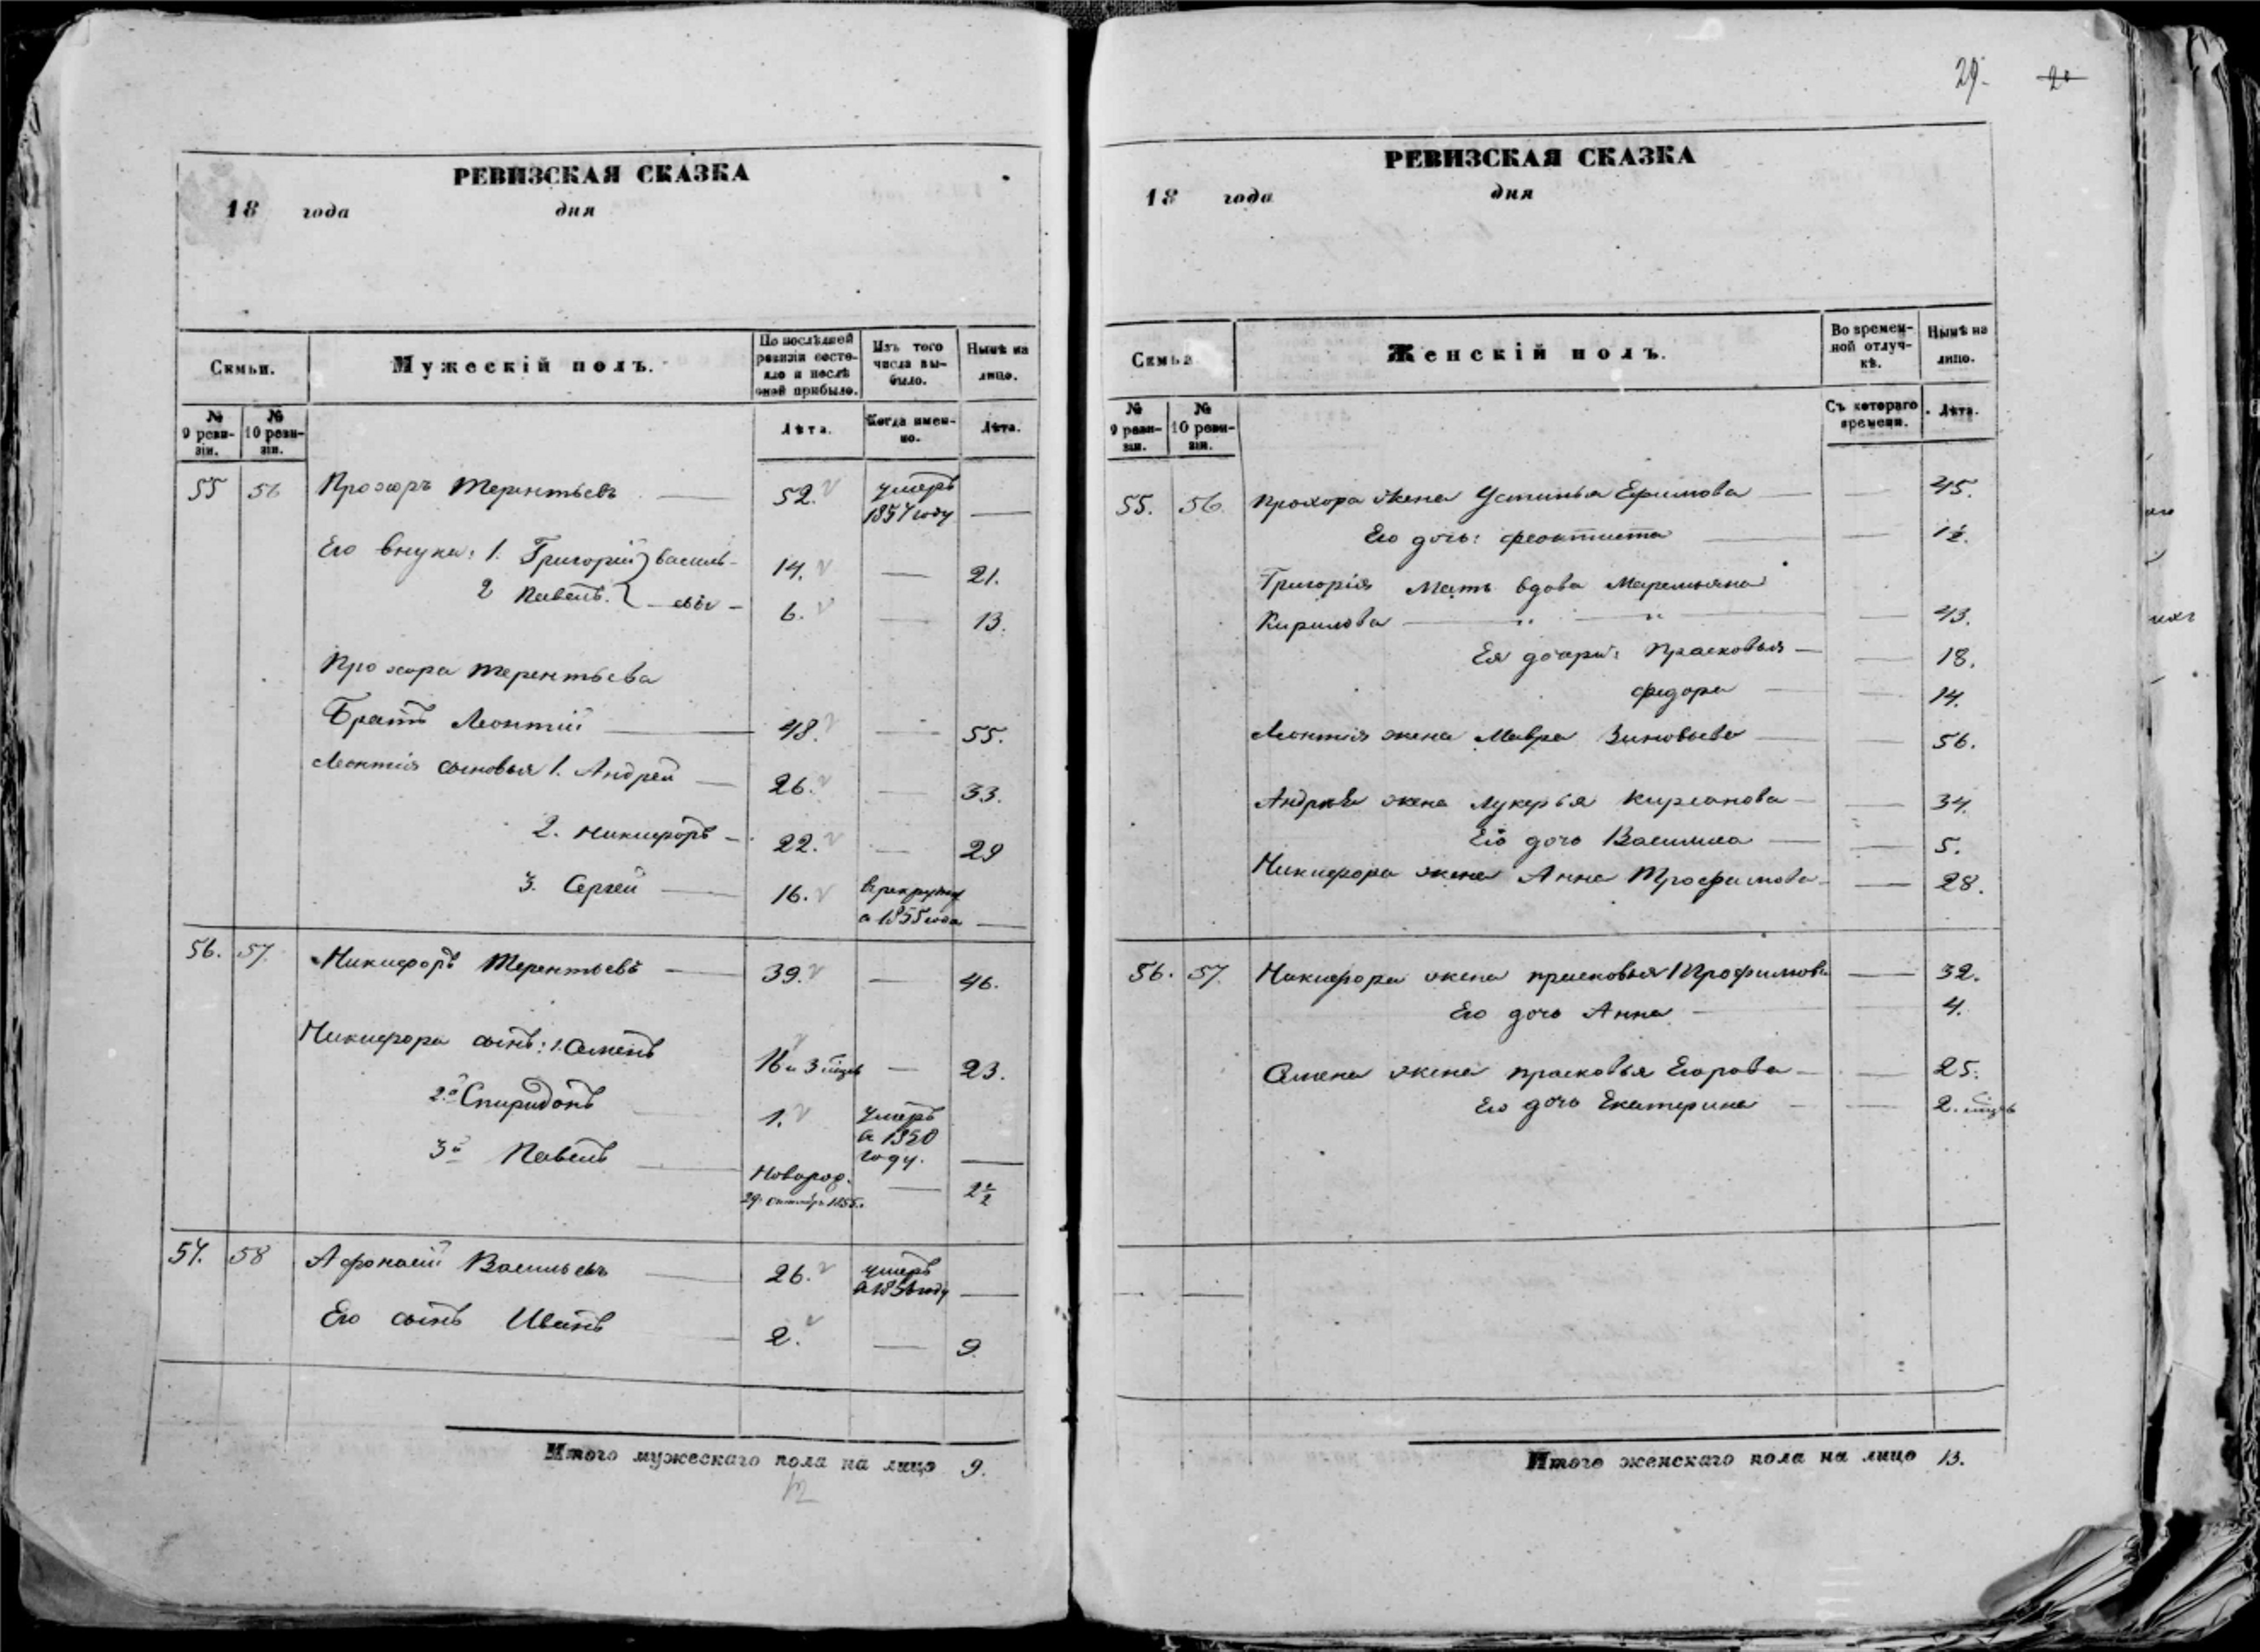 РЕВИЗСКАЯ СКАЗКА
18 года дня
Семьи. Мужескій полъ. По послѣдней ревизіи состояло и послѣ оной прибыло. Изъ того числа выбыло. Нынѣ на лицо.
№ 9 ревизіи. № 10 ревизіи. Лѣта. Когда именно. Лѣта.
55 56 Прохоръ Терентьевъ 52. умеръ 1857 году
Его внуки: 1. Григорій Василь- 14. 21.
2 Павелъ. евы 6. 13.
Прохора Терентьева
Братъ Леонтій 48. 55.
Леонтія сыновья 1. Андрей 26. 33.
2. Никифоръ 22. 29
3. Сергей 16. в рекруты в 1855 года
56. 57. Никифоръ Терентьевъ 39. 46.
Никифора сынъ: 1. Семенъ 16 и 3 мцъ 23.
2й Спиридонъ 1. умеръ в 1850 году.
3й Павелъ Новорож. 29. октябр. 1855. 2 1/2
57. 58 Афонасій Васильевъ 26. умеръ в 1856 году
Его сынъ Иванъ 2. 9.
Итого мужескаго пола на лицо 9.
29. 20
РЕВИЗСКАЯ СКАЗКА
18 года дня
Семьи. Женскій полъ. Во временной отлучкѣ. Нынѣ на лицо.
№ 9 ревизіи. № 10 ревизіи. Съ котораго времени. Лѣта.
55. 56. Прохора жена Устинья Ефимова 45.
Его дочь: Феоктиста 1 1/2.
Григорія Мать вдова Маремьяна
Кирилова „ „ 43.
Ея дочери: Прасковья 18.
Федора 14.
Леонтія жена Мавра Зиновьева 56.
Андрея жена Лукерья Кирсанова 34.
Его дочь Василиса 5.
Никифора жена Анна Трофимова 28.
56. 57. Никифора жена Прасковья Трофимова 32.
Его дочь Анна 4.
Семена жена Прасковья Егорова 25.
Его дочь Екатерина 2. мцъ
Итого женскаго пола на лицо 13.